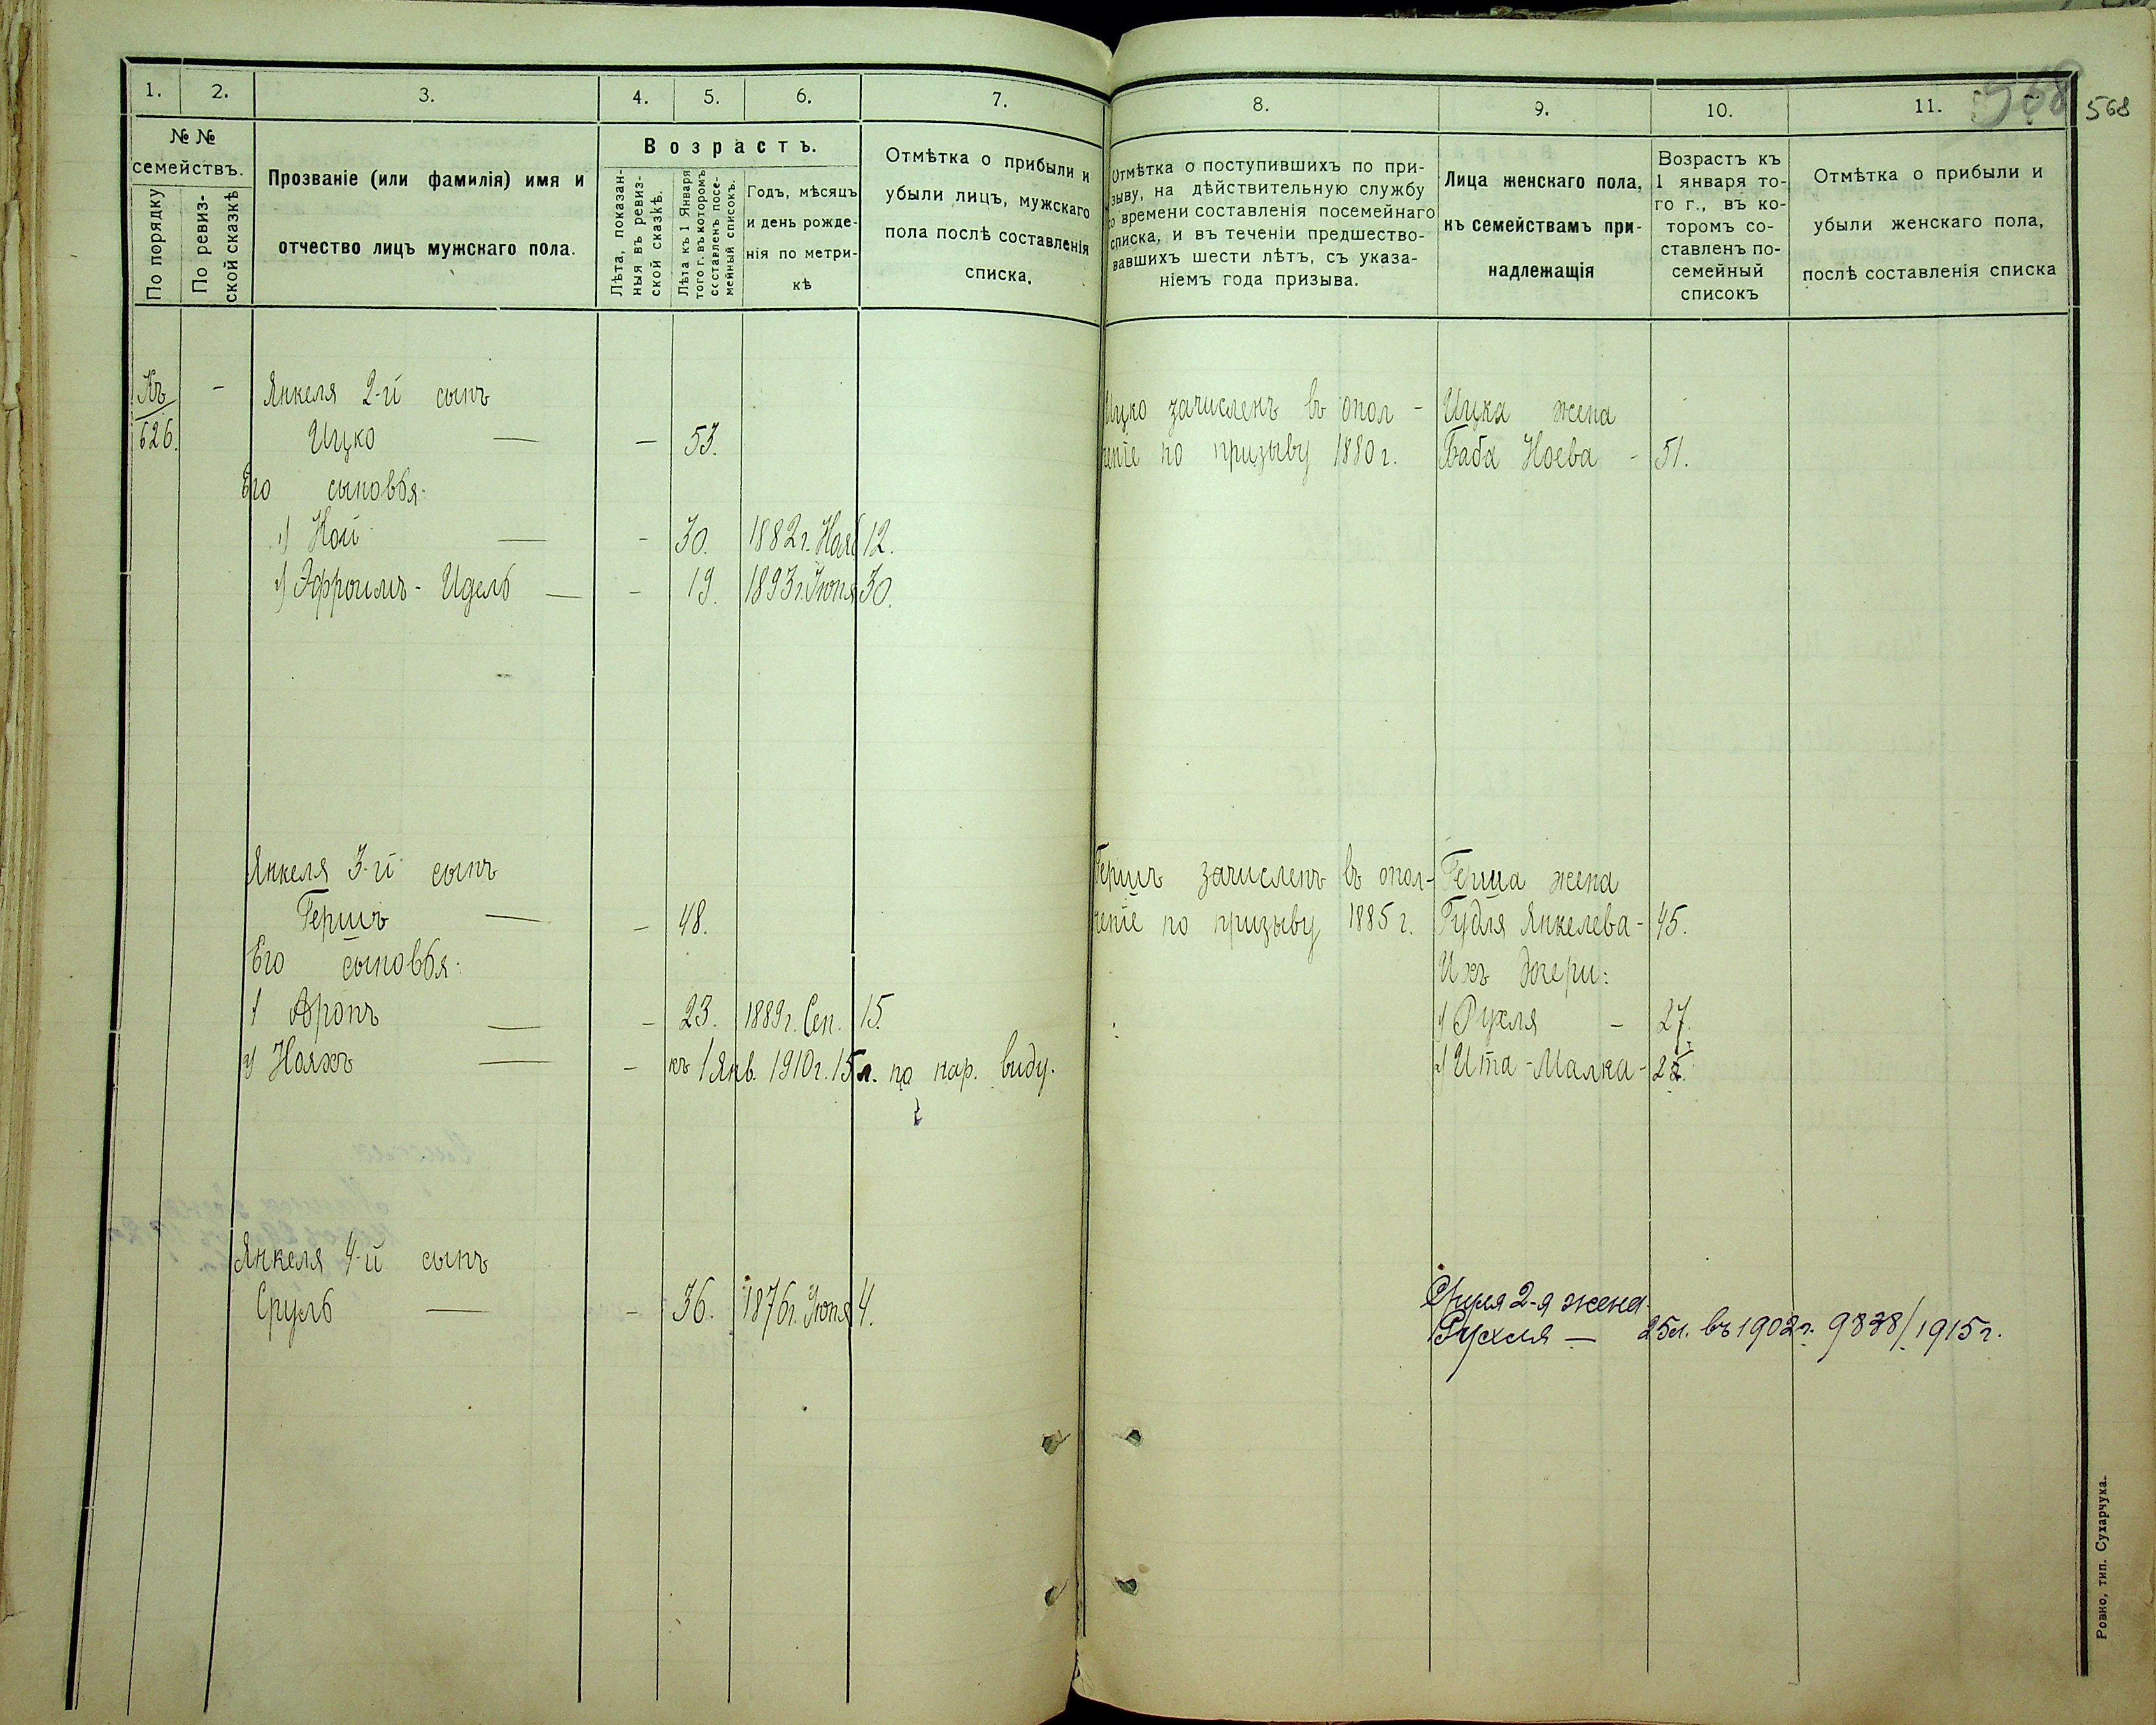 568
568
1.
2.
3.
4.
5.
6.
7.
8.
9.
10.
11.
№ №
семействъ.
По порядку
По ревиз-
ской сказкѣ
Прозваніе (или фамилія) имя и
отчество лицъ мужскаго пола.
Возрастъ.
Лѣта, показан-
ныя въ ревиз-
ской сказкѣ.
Лѣта къ 1 Января
того г. въ которомъ
составленъ посе-
мейный списокъ.
Годъ, мѣсяцъ
и день рожде-
нія по метри-
кѣ
Отмѣтка о прибыли и
убыли лицъ, мужскаго
пола послѣ составленія
списка.
Отмѣтка о поступившихъ по при-
зыву, на дѣйствительную службу
о времени составленія посемейнаго
списка, и въ теченіи предшество-
вавшихъ шести лѣтъ, съ указа-
ніемъ года призыва.
Лица женскаго пола,
къ семействамъ при-
надлежащія
Возрастъ къ
1 января то-
го г., въ ко-
торомъ со-
ставленъ по-
семейный
списокъ
Отмѣтка о прибыли и
убыли женскаго пола,
послѣ составленія списка
Къ - Янкеля 2-й сынъ
626. Ицко — — 53.
Его сыновья:
1) Ной — - 30. 1882 г. Нояб 12.
2) Эфроимъ - Идель — - 19. 1893 г. Іюня 30.
Ицко зачисленъ въ опол- Ицка жена
ченіе по призыву 1880 г. Баба Ноева - 51.
Янкеля 3-й сынъ
Гершъ — - 48.
Его сыновья:
1 Аронъ — - 23. 1889 г. Сен. 15.
2) Нояхъ — - къ 1 Янв. 1910 г. 15 л. по нар. виду.
Гершъ зачисленъ въ опол- Герша жена
ченіе по призыву 1885 г. Гудля Янкелева - 45.
Ихъ дочери:
1) Рухля - 27.
2) Ита - Малка -
Янкеля 4-й сынъ
Сруль — - 36. 1876 г. Іюня 4.
Сруля 2-я жена
Рухля — 25 л. въ 1902 г. 9838/1915 г.
Ровно, тип. Сухарчука.